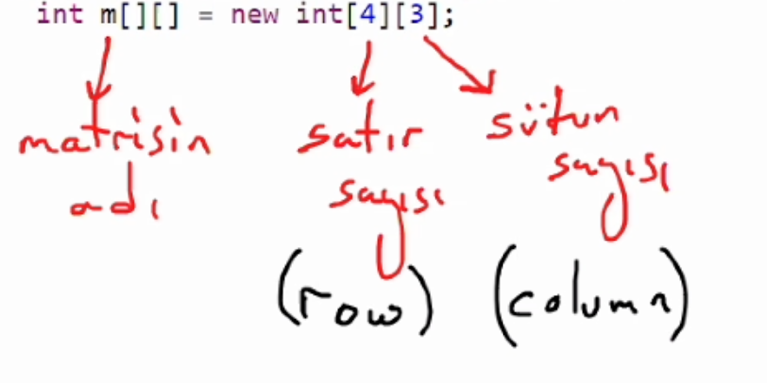 int m[][] = new int[4][3];
matrisin
adı
satır
sayısı
(row)
sütun
sayısı
(column)